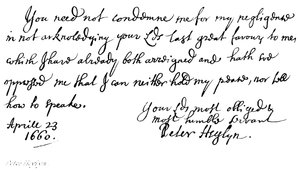 You need not condemne me for my negligence
in not acknoledging your Lds last great favour to mee
which I have already both arreigned and hath soe
oppressed me that I can neither hold my peace, nor tell
how to speake.
Your Lds most obliged &
most humble servant
Aprill 23
1660.
Peter Heylyn.